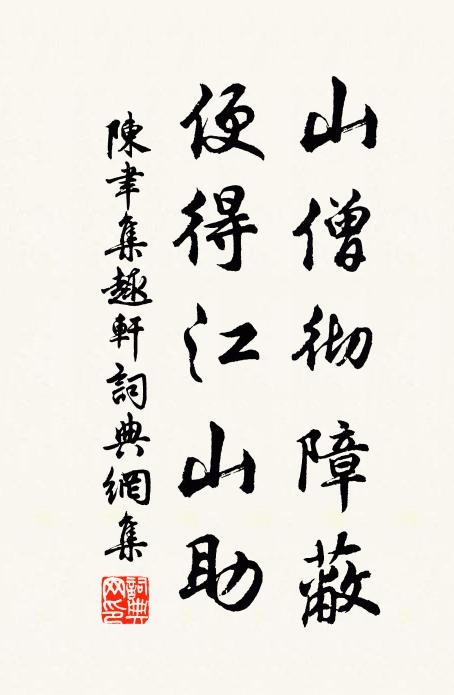 山僧彻障蔽
便得江山助
陳聿集趣軒詞典網集
詞典网印